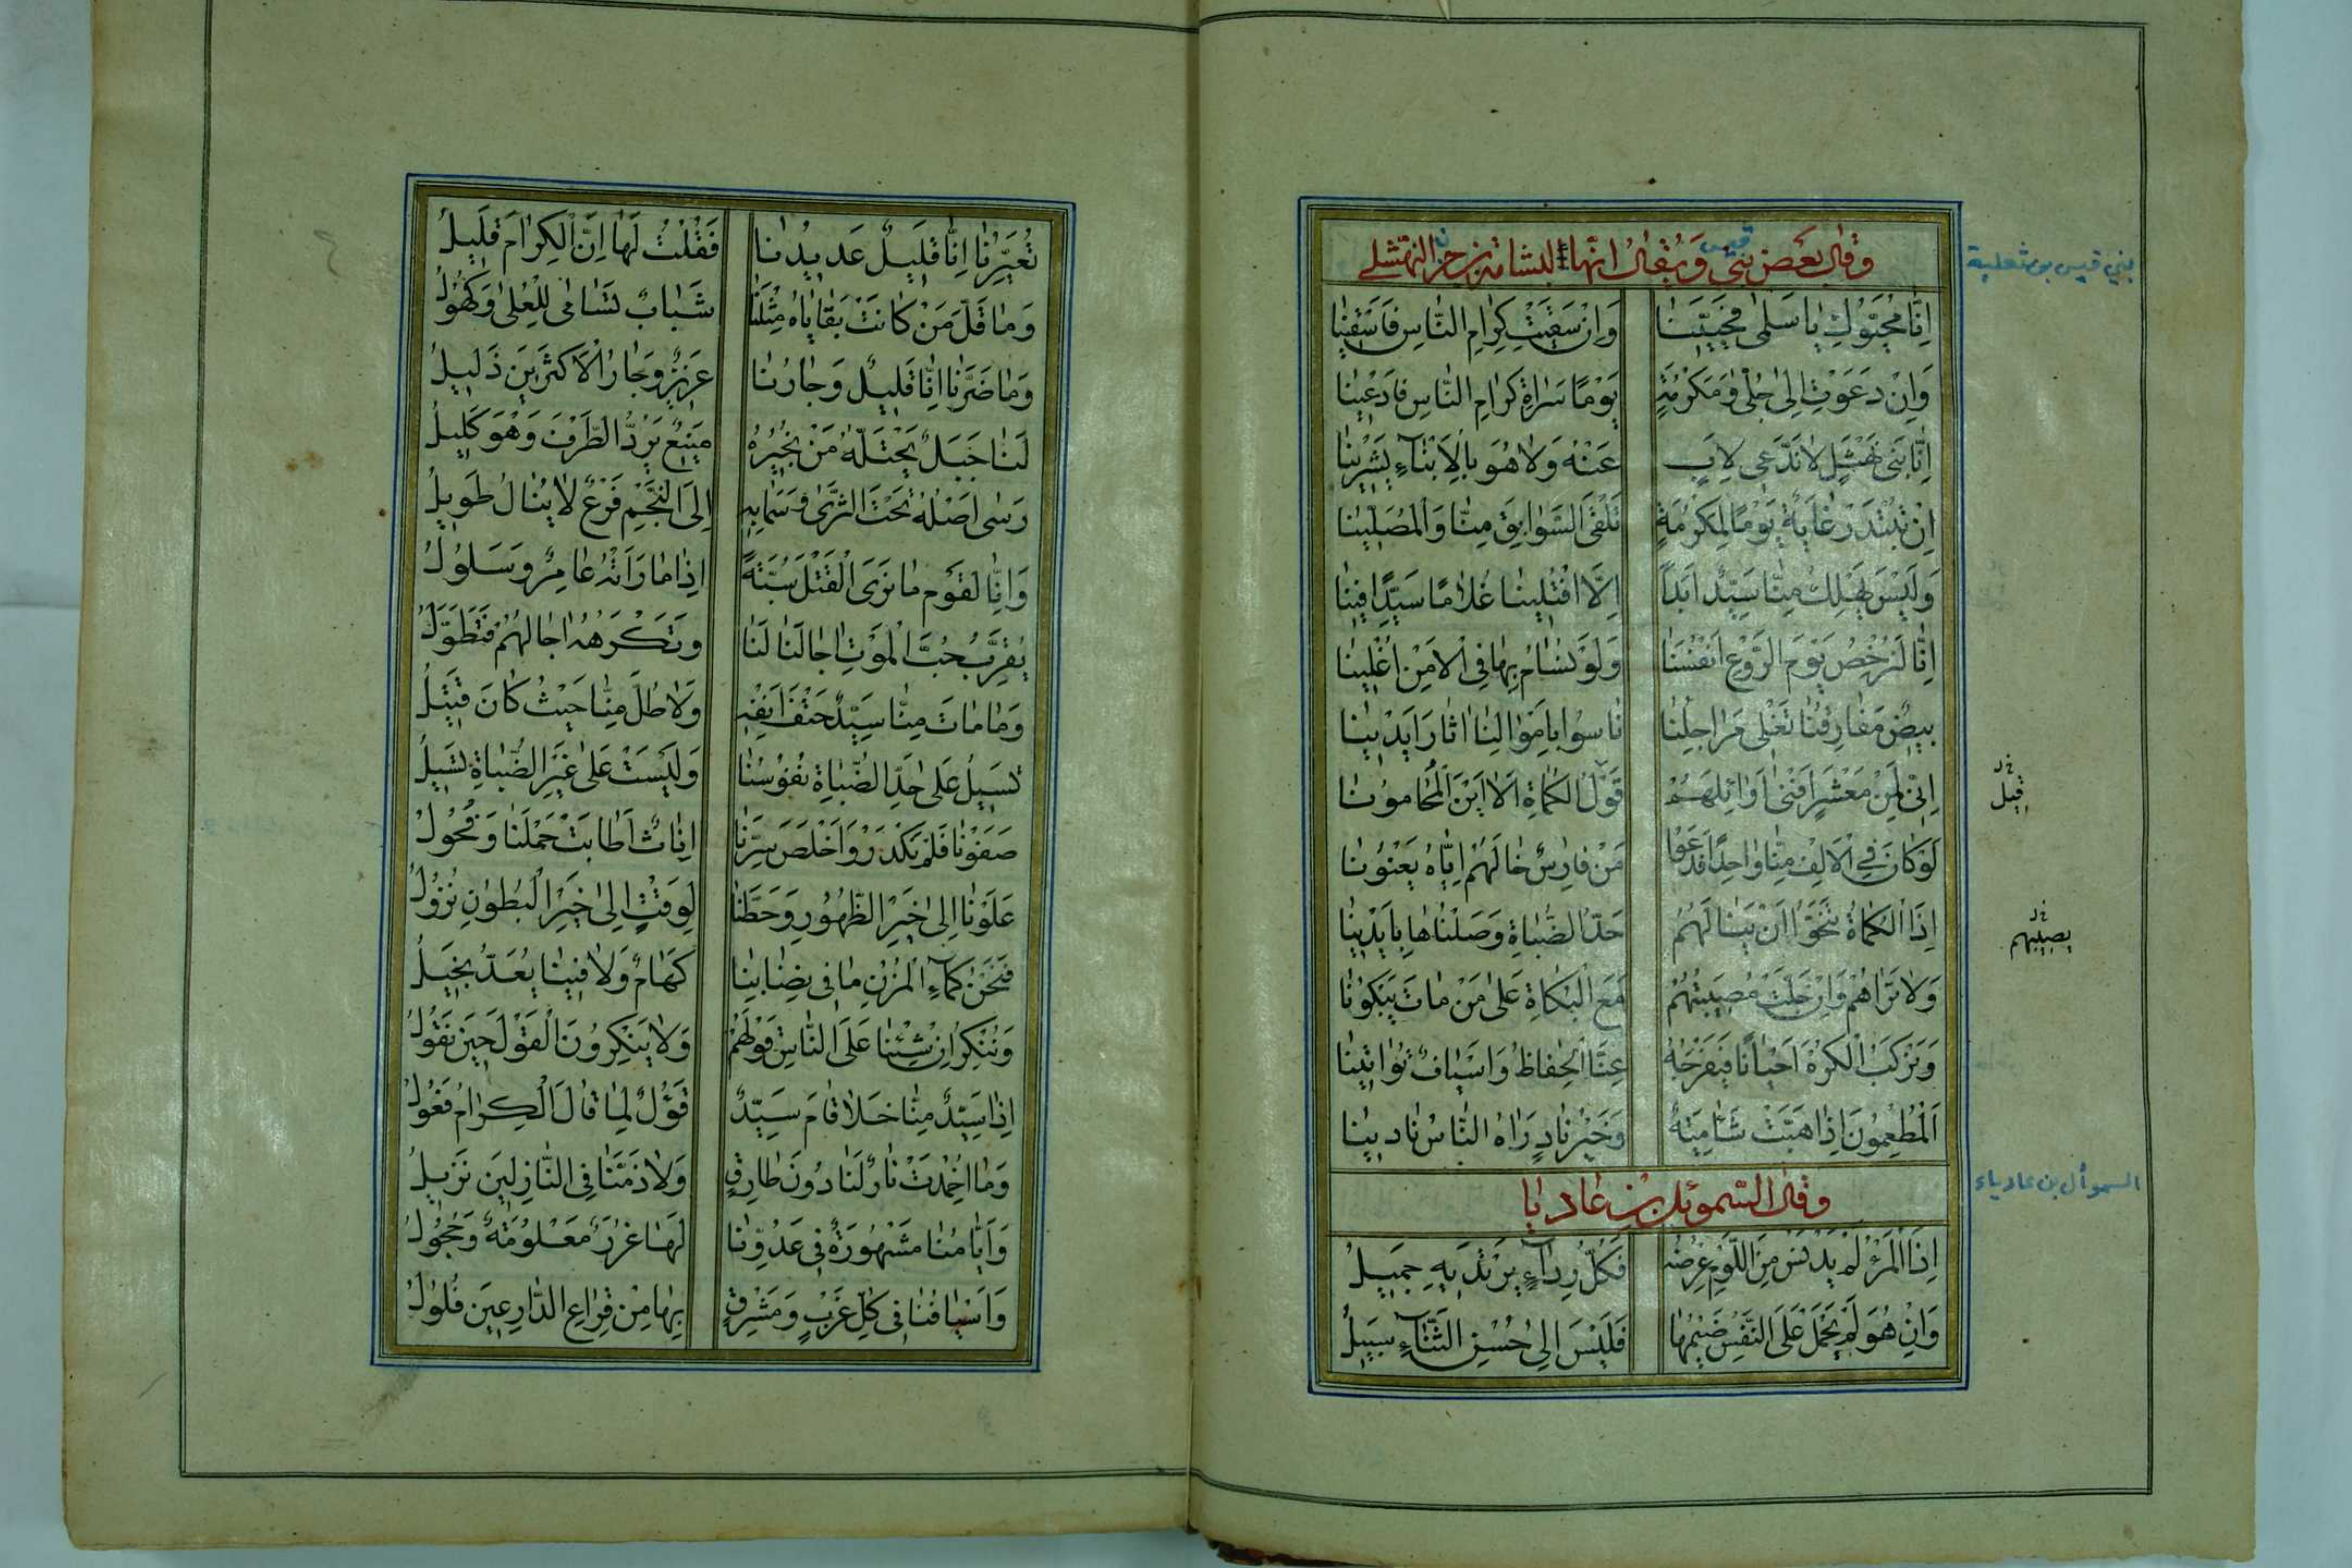 وقال بعض بني قيس ويقال انها لبشامة بن حزن النهشلي
بني قيس بن ثعلبة
اِنّا مُحَيّوكِ يا سَلمى فَحَيّينا وَاِن سَقَيتِ كِرامَ النّاسِ فَاسقينا
وَاِن دَعَوتِ اِلى جُلّى وَمَكرُمَةٍ يَومًا سَراةَ كِرامِ النّاسِ فَادعينا
اِنّا بَني نَهشَلٍ لا نَدَّعي لِاَبٍ عَنهُ وَلا هُوَ بِالاَبناءِ يَشرينا
اِن تُبتَدَر غايَةٌ يَومًا لِمَكرُمَةٍ تَلقَ السَّوابِقَ مِنّا وَالمُصَلّينا
وَلَيسَ يَهلِكُ مِنّا سَيِّدٌ اَبَداً اِلّا افتَلَينا غُلامًا سَيِّدًا فينا
اِنّا لَنُرخِصُ يَومَ الرَّوعِ اَنفُسَنا وَلَو نُسامُ بِها في الاَمنِ اُغلينا
بيضٌ مَفارِقُنا تَغلي مَراجِلُنا ناسوا باَموالِنا اثارَ اَيدينا
اِنّي لَمِن مَعشَرٍ اَفنى اَوائِلَهُم قَولُ الكُماةِ اَلا اَينَ المُحامونا
قيل
لَو كانَ في الاَلفِ مِنّا واحِدٌ فَدَعَوا مَن فارِسٌ خالَهُم اِيّاهُ يَعنونا
اِذا الكُماةُ تَنَحَّوا اَن يَنالَهُم حَدُّ الظُّباةِ وَصَلناها بِاَيدينا
يصيبهم
وَلا تَراهُم وَاِن جَلَّت مُصيبَتُهُم مَعَ البُكاةِ عَلى مَن ماتَ يَبكونا
وَنَركَبُ الكُرهَ اَحيانًا فَيَفرُجُهُ عَنّا الحِفاظُ وَاَسيافٌ تُواتينا
اَلمُطعِمونَ اِذا هَبَّت شَآمِيَةٌ وَخَيرُ نادٍ رَاهُ النّاسُ نادينا
وقال السموئل بن عاديا
السموأل بن عادياء
اِذَا المَرءُ لَم يَدنَس مِنَ اللَّومِ عِرضُهُ فَكُلُّ رِداءٍ يَرتَديهِ جَميلُ
وَاِن هُوَ لَم يَحمِل عَلَى النَّفسِ ضَيمَها فَلَيسَ اِلى حُسنِ الثَّناءِ سَبيلُ
تُعَيِّرُنا اِنّا قَليلٌ عَديدُنا فَقُلتُ لَها اِنَّ الكِرامَ قَليلُ
وَما قَلَّ مَن كانَت بَقاياهُ مِثلَنا شَبابٌ تَسامى لِلعُلى وَكُهولُ
وَما ضَرَّنا اِنّا قَليلٌ وَجارُنا عَزيزٌ وَجارُ الاَكثَرينَ ذَليلُ
لَنا جَبَلٌ يَحتَلُّهُ مَن نُجيرُهُ مَنيعٌ يَرُدُّ الطَّرفَ وَهوَ كَليلُ
رَسى اَصلُهُ تَحتَ الثَّرى وَسَما بِهِ اِلَى النَّجمِ فَرعٌ لا يُنالُ طَويلُ
وَاِنّا لَقَومٌ ما نَرَى القَتلَ سُبَّةً اِذا ما رَاَتهُ عامِرٌ وَسَلولُ
يُقَرِّبُ حُبُّ المَوتِ اجالَنا لَنا وَتَكرَهُهُ اجالُهُم فَتَطَوَّلُ
وَما ماتَ مِنّا سَيِّدٌ حَتفَ اَنفِهِ وَلا طُلَّ مِنّا حَيثُ كانَ قَتيلُ
تَسيلُ عَلى حَدِّ الظُّباةِ نُفوسُنا وَلَيسَت عَلى غَيرِ الظُّباةِ تَسيلُ
صَفَونا فَلَم نَكدَر وَاَخلَصَ سِرَّنا اِناثٌ اَطابَت حَملَنا وَفُحولُ
عَلَونا اِلى خَيرِ الظُّهورِ وَحَطَّنا لِوَقتٍ اِلى خَيرِ البُطونِ نُزولُ
فَنَحنُ كَماءِ المُزنِ ما في نِصابِنا كَهامٌ وَلا فينا يُعَدُّ بَخيلُ
وَنُنكِرُ اِن شِئنا عَلَى النّاسِ قَولَهُم وَلا يُنكِرونَ القَولَ حينَ نَقولُ
اِذا سَيِّدٌ مِنّا خَلا قامَ سَيِّدٌ قَؤُلٌ لِما قالَ الكِرامُ فَعولُ
وَما اُخمِدَت نارٌ لَنا دونَ طارِقٍ وَلا ذَمَّنا في النّازِلينَ نَزيلُ
وَاَيّامُنا مَشهورَةٌ في عَدُوِّنا لَها غُرَرٌ مَعلومَةٌ وَحُجولُ
وَاَسيافُنا في كُلِّ غَربٍ وَمَشرِقٍ بِها مِن قِراعِ الدّارِعينَ فُلولُ